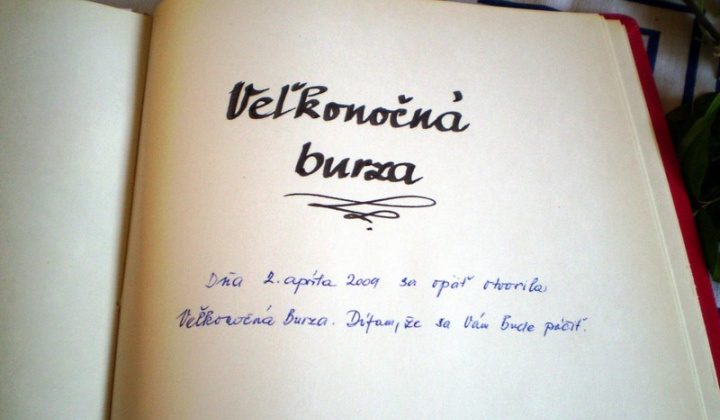 Veľkonočná
burza
Dňa 2. apríla 2009 sa opäť otvorila
Veľkonočná Burza. Dúfam, že sa Vám Bude páčiť.